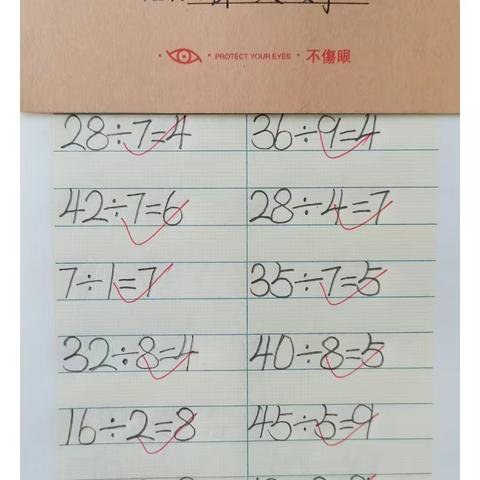 PROTECT YOUR EYES · 不傷眼
28÷7=4 36÷9=4
42÷7=6 28÷4=7
7÷1=7 35÷7=5
32÷8=4 40÷8=5
16÷2=8 45÷5=9